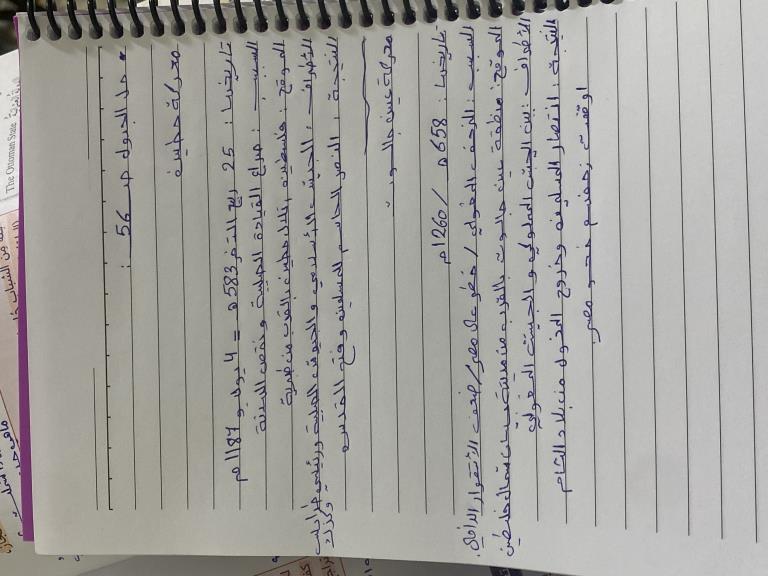 حل الجدول ص 56 :
معركة حطين
تاريخها : 25 ربيع الآخر 583هـ = 4 يوليو 1187م
السبب : صراع القيادة الصليبية ونقض الهدنة
الموقع : فلسطين ، تلال حطين بالقرب من طبرية
الأطراف : الجيش الأيوبي و الجيوش الصليبية
النتيجة : النصر الحاسم للمسلمين وفتح القدس
معركة عين جالوت
تاريخها : 658هـ / 1260م
السبب : الزحف المغولي / خطر على مصر / ضعف
الموقع : منطقة عين جالوت بالقرب من مدينة بيسان شمال فلسطين
الأطراف : بين الجيش المملوكي و الجيش المغولي
النتيجة : انتصار المسلمين وخروج المغول من بلاد الشام
زحفهم نحو مصر
The Ottoman State